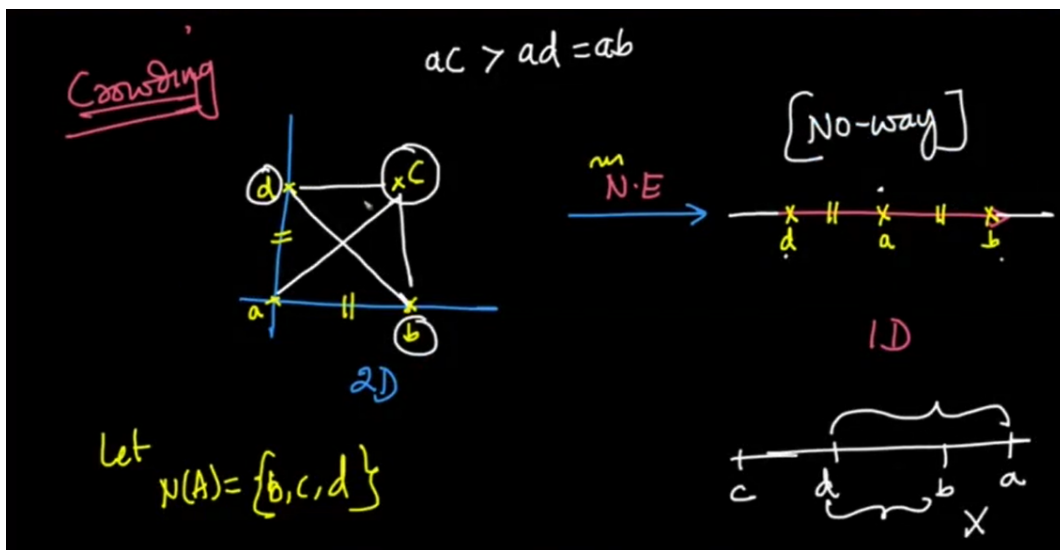 Crowding
ac > ad = ab
[No-way]
N.E
d a b
d c
a b
2D
1D
Let
N(A) = {b, c, d}
c d b a
X